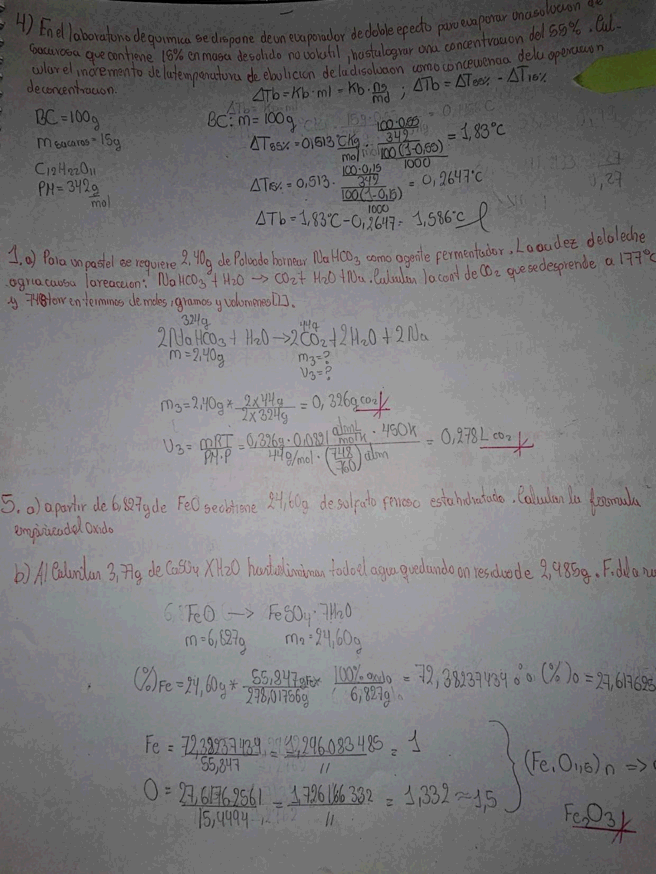 4) En el laboratorio de quimica se dispone de un evaporador de doble efecto para evaporar una solucion de
Sacarosa que contiene 15% en masa de solido no volatil, hasta lograr una concentracion del 55%. Cal-
cular el incremento de la temperatura de ebulicion de la disolucion como concecuencia de la operacion
de concentracion.
ΔTb = Kb·ml = Kb· ; ΔTb = ΔT55% - ΔT15%
BC = 100g
BC: m = 100g
m sacaros = 15g
ΔT55% = 0,513 °CKg/mol · (100·0,55/342)/(100(1-0,55)/1000) = 1,83°C
C12H22O11
PM = 342 g/mol
ΔT15% = 0,513 · (100·0,15/342)/(100(1-0,15)/1000) = 0,2647°C
ΔTb = 1,83°C - 0,2647 = 1,586°C
1.a) Para un pastel se requiere 2,40g de Polvo de hornear NaHCO3 como agente fermentador. La acidez de la leche
agria causa la reaccion: NaHCO3 + H2O → CO2 + H2O + Na. Calcular la cant de CO2 que se desprende a 177°C
y 748 torr en terminos de moles, gramos y volumenes[l].
324g 44g
2NaHCO3 + H2O → 2CO2 + 2H2O + 2Na
m = 2,40g m3 = ?
V3 = ?
m3 = 2,40g * 2x44g/2x324g = 0,326g co2
V3 = mRT/PM·P = 0,326g · 0,0821 atmL/molK · 450K/44g/mol · (748/760) atm = 0,278L co2
5. a) a partir de 6,827g de FeO se obtiene 24,60g de sulfato ferroso esta hidratado. Calcular la formula
empirica del Oxido
b) Al Calcular 3,77g de CaSO4 XH2O hasta eliminar todo el agua quedando un residuo de 2,985g. F. de la
FeO → FeSO4·7H2O
m = 6,827g m2 = 24,60g
(%)Fe = 24,60g * 55,847gFe/278,01756g * 100% oxido/6,827g = 72,38237439 % (%)O = 27,617625
Fe = 72,38237439/55,847 = 1,296083485/11 = 1
O = 27,61762561/15,9994 = 1,726166332/11 = 1,332 ≈ 1,5
(Fe1O1,5)n =>
Fe2O3